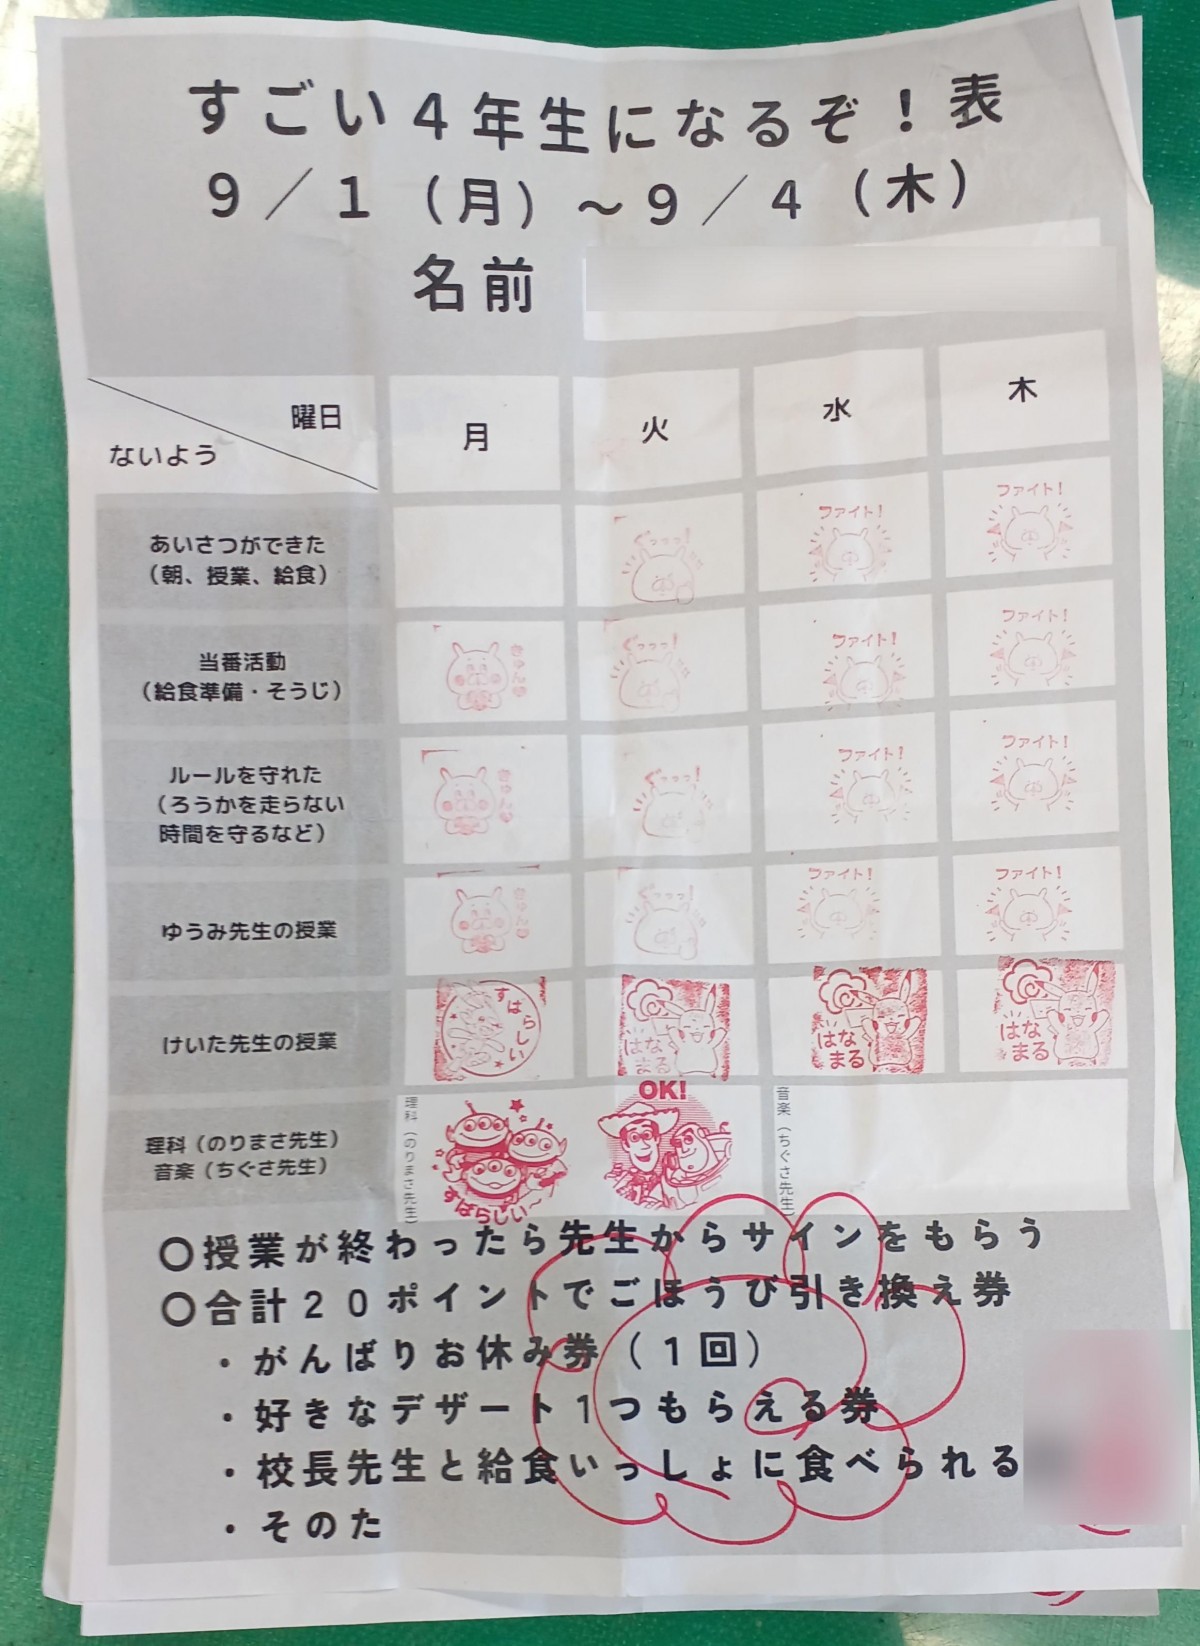 すごい4年生になるぞ！表
9／1（月）～9／4（木）
名前
曜日
ないよう
月
火
水
木
あいさつができた
（朝、授業、給食）
ぐっっっ！
ファイト！
ファイト！
当番活動
（給食準備・そうじ）
きゅん
ぐっっっ！
ファイト！
ファイト！
ルールを守れた
（ろうかを走らない
時間を守るなど）
きゅん
ぐっっっ！
ファイト！
ファイト！
ゆうみ先生の授業
きゅん
ぐっっっ！
ファイト！
ファイト！
けいた先生の授業
すばらしい
はな
まる
はな
まる
はな
まる
理科（のりまさ先生）
音楽（ちぐさ先生）
理科（のりまさ先生）
すばらしい～
OK!
音楽（ちぐさ先生）
〇授業が終わったら先生からサインをもらう
〇合計20ポイントでごほうび引き換え券
・がんばりお休み券（1回）
・好きなデザート1つもらえる券
・校長先生と給食いっしょに食べられる
・そのた